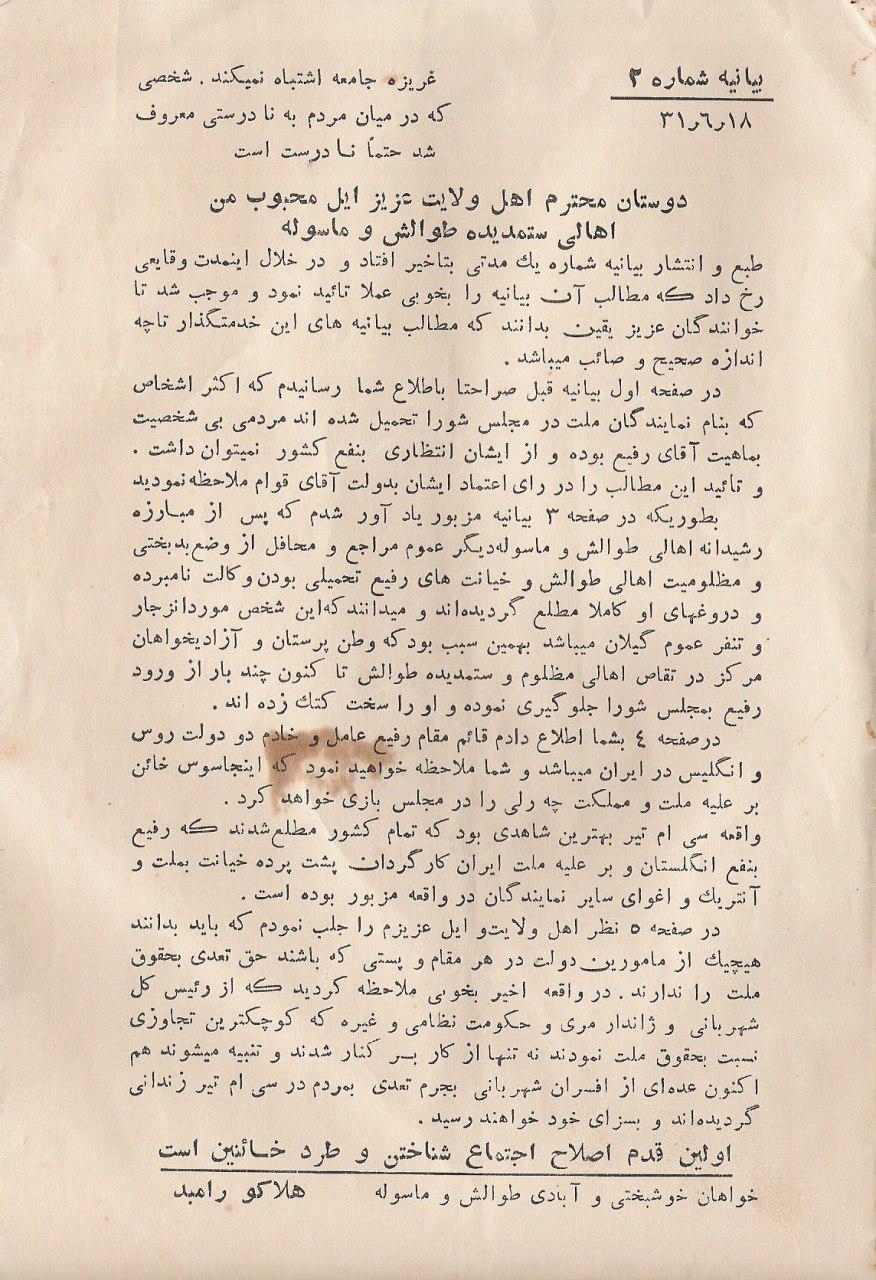 بیانیه شماره ۲
۳۱ر۶ر۱۸
غریزه جامعه اشتباه نمیکند . شخصی
که در میان مردم به نا درستی معروف
شد حتماً نا درست است
دوستان محترم اهل ولایت عزیز ایل محبوب من
اهالی ستمدیده طوالش و ماسوله
طبع و انتشار بیانیه شماره یك مدتی بتاخیر افتاد و در خلال اینمدت وقایعی
رخ داد که مطالب آن بیانیه را بخوبی عملا تائید نمود و موجب شد تا
خوانندگان عزیز یقین بدانند که مطالب بیانیه های این خدمتگذار تاچه
اندازه صحیح و صائب میباشد .
در صفحه اول بیانیه قبل صراحتا باطلاع شما رسانیدم که اکثر اشخاص
که بنام نمایندگان ملت در مجلس شورا تحمیل شده اند مردمی بی شخصیت
بماهیت آقای رفیع بوده و از ایشان انتظاری بنفع کشور نمیتوان داشت .
و تائید این مطالب را در رای اعتماد ایشان بدولت آقای قوام ملاحظه نمودید
بطوریکه در صفحه ۳ بیانیه مزبور یاد آور شدم که پس از مبارزه
رشیدانه اهالی طوالش و ماسوله دیگر عموم مراجع و محافل از وضع بدبختی
و مظلومیت اهالی طوالش و خیانت های رفیع تحمیلی بودن وکالت نامبرده
و دروغهای او کاملا مطلع گردیده‌اند و میدانند که این شخص مورد انزجار
و تنفر عموم گیلان میباشد بهمین سبب بود که وطن پرستان و آزادیخواهان
مرکز در تقاص اهالی مظلوم و ستمدیده طوالش تا کنون چند بار از ورود
رفیع بمجلس شورا جلوگیری نموده و او را سخت کتك زده اند .
در صفحه ٤ بشما اطلاع دادم قائم مقام رفیع عامل و خادم دو دولت روس
و انگلیس در ایران میباشد و شما ملاحظه خواهید نمود که اینجاسوس خائن
بر علیه ملت و مملکت چه رلی را در مجلس بازی خواهد کرد .
واقعه سی ام تیر بهترین شاهدی بود که تمام کشور مطلع شدند که رفیع
بنفع انگلستان و بر علیه ملت ایران کارگردان پشت پرده خیانت بملت و
آنتریك و اغوای سایر نمایندگان در واقعه مزبور بوده است .
در صفحه ٥ نظر اهل ولایت و ایل عزیزم را جلب نمودم که باید بدانند
هیچیك از مامورین دولت در هر مقام و پستی که باشند حق تعدی بحقوق
ملت را ندارند . در واقعه اخیر بخوبی ملاحظه کردید که از رئیس کل
شهربانی و ژاندار مری و حکومت نظامی و غیره که کوچکترین تجاوزی
نسبت بحقوق ملت نمودند نه تنها از کار بر کنار شدند و تنبیه میشوند هم
اکنون عده‌ای از افسران شهربانی بجرم تعدی بمردم در سی ام تیر زندانی
گردیده‌اند و بسزای خود خواهند رسید .
اولین قدم اصلاح اجتماع شناختن و طرد خائنین است
خواهان خوشبختی و آبادی طوالش و ماسوله هلاکو رامبد